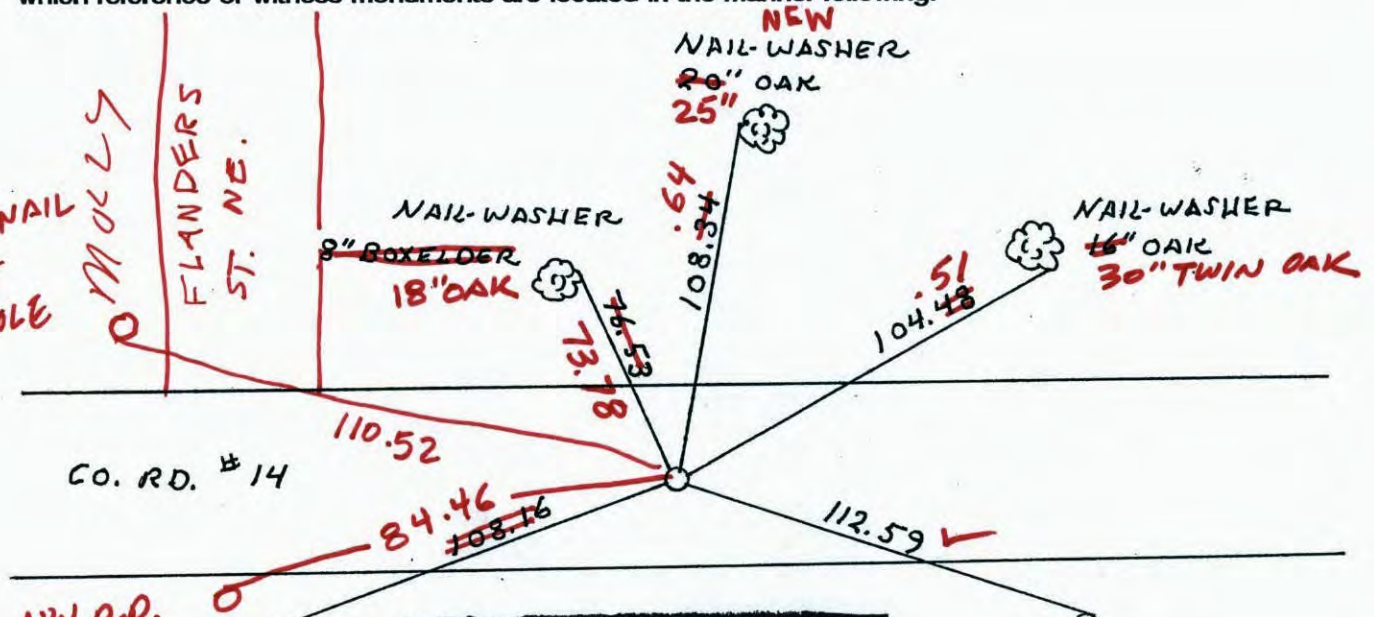 which reference or witness monuments are located in the manner following:
NEW
NAIL-WASHER
20" OAK
25"
MOLLY
FLANDERS
ST. NE.
NAIL
NAIL-WASHER
8" BOXELDER
18" OAK
NAIL-WASHER
16" OAK
30" TWIN OAK
.64
108.34
.51
104.48
76.53
73.78
110.52
CO. RD. # 14
84.46
108.16
112.59 ✓